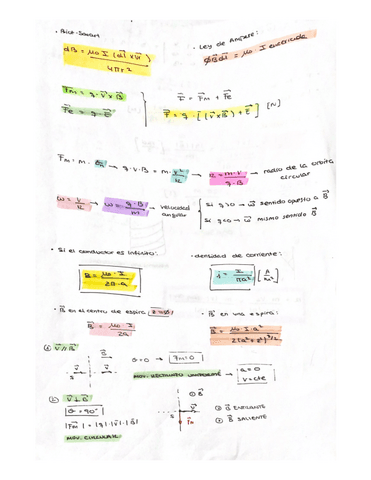 · Biot-Savart
dB = μ₀·I (dl × ur) / 4πr²
· Ley de Ampere:
∮Bdl = μ₀·I encerrada
Fm = q·v×B
Fe = q·E
F = Fm + Fe
F = q·[(v×B)+E] [N]
Fm = m·an → q·v·B = m·v²/R → R = m·v/q·B → radio de la orbita circular
ω = v/R → ω = q·B/m → velocidad angular
si q>0 → ω sentido opuesto a B
si q<0 → ω mismo sentido B
· Si el conductor es infinito:
B = μ₀·I / 2π·a
· densidad de corriente:
j = I/πa² [A/m²]
· B en el centro de espira
B = μ₀·I / 2a
· B en una espira:
B = μ₀·I·a² / 2(a²+z²)^3/2
a) v // B
B
v
θ=0 → Fm=0
MOV. RECTILINEO UNIFORME → a=0
v=cte
b) v ⊥ B
θ = 90°
|Fm| = |q|·|v|·|B|
MOV. CIRCULAR
B
v
Fm
⊗ B ENTRANTE
⊙ B SALIENTE